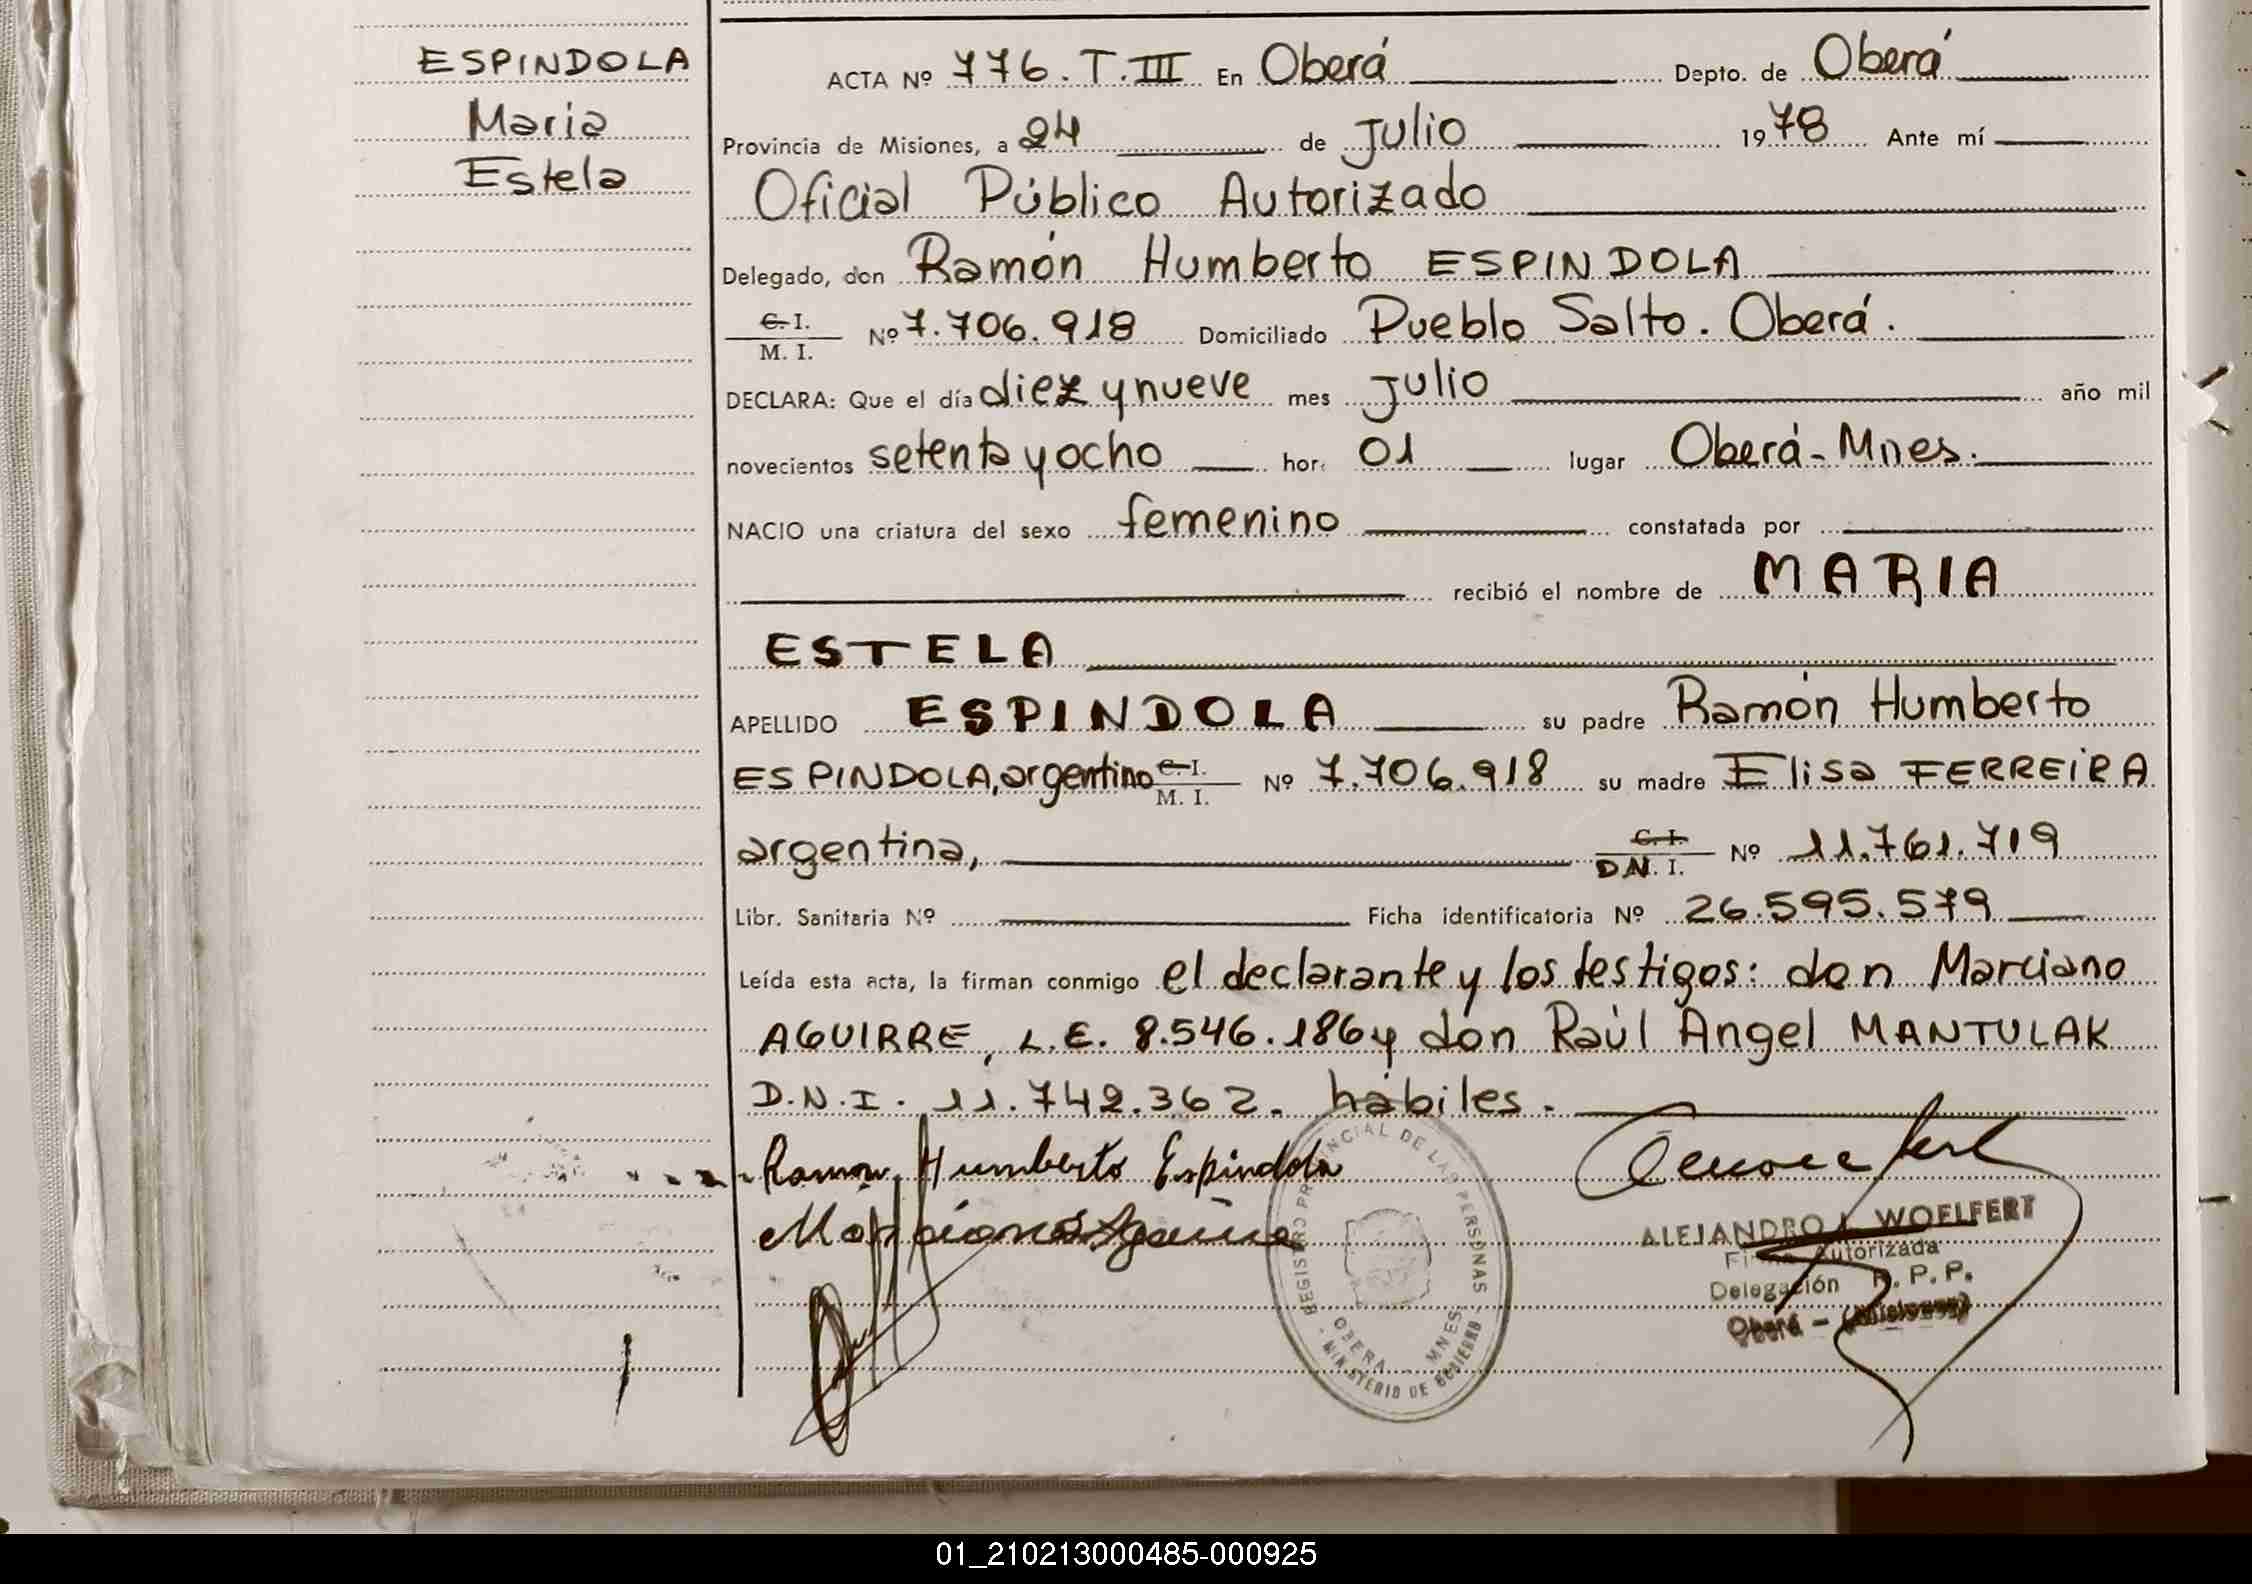 ESPINDOLA
Maria
Estela
ACTA Nº 776. T. III En Oberá Depto. de Oberá
Provincia de Misiones, a 24 de Julio 1978 Ante mí
Oficial Público Autorizado
Delegado, don Ramón Humberto ESPINDOLA
C. I.
M. I. Nº 7.706.918 Domiciliado Pueblo Salto. Oberá.
DECLARA: Que el día diez y nueve mes Julio año mil
novecientos setenta y ocho hor: 01 lugar Oberá - Mnes.
NACIO una criatura del sexo femenino constatada por
recibió el nombre de MARIA
ESTELA
APELLIDO ESPINDOLA su padre Ramón Humberto
ESPINDOLA, argentino C. I. M. I. Nº 7.706.918 su madre Elisa FERREIRA
argentina, C. I. D.N. I. Nº 11.761.719
Libr. Sanitaria Nº Ficha identificatoria Nº 26.595.579
Leída esta acta, la firman conmigo el declarante y los testigos: don Marciano
AGUIRRE, L.E. 8.546.186 y don Raúl Angel MANTULAK
D.N.I. 11.742.362. hábiles.
Ramon Humberto Espindola
Marciano Aguirre
REGISTRO PROVINCIAL DE LAS PERSONAS
OBERA MNES
MINISTERIO DE GOBIERNO
ALEJANDRO L. WOELFERT
Firma Autorizada
Delegación R. P. P.
Oberá - (Misiones)
01_210213000485-000925